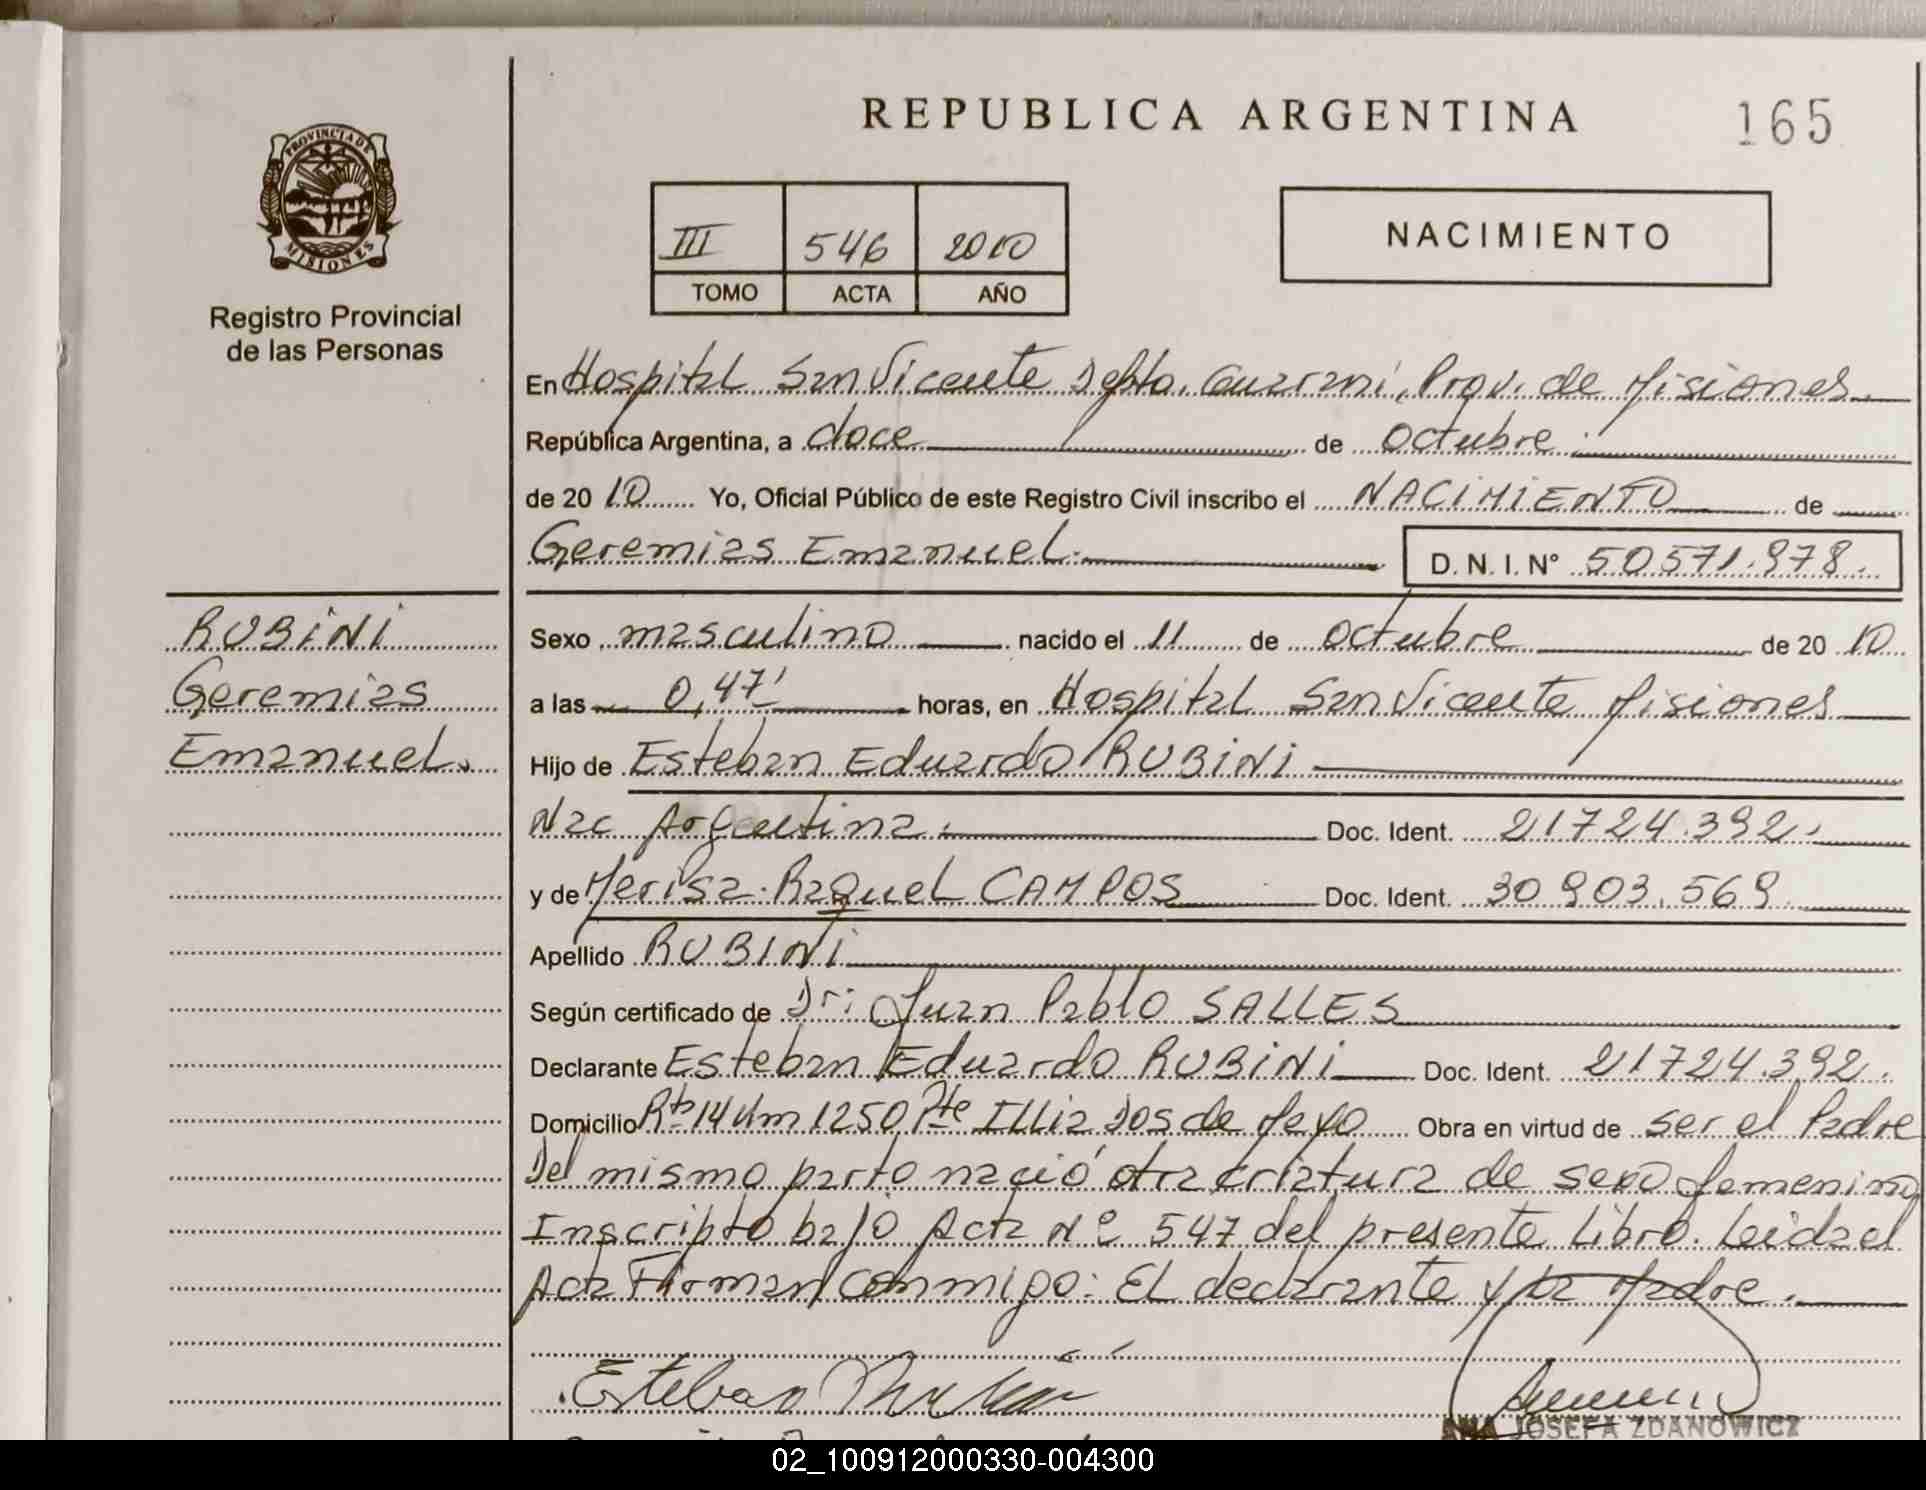 REPUBLICA ARGENTINA
165
PROVINCIA DE
MISIONES
Registro Provincial
de las Personas
III 546 2010
TOMO ACTA AÑO
NACIMIENTO
En Hospital San Vicente Depto. Guaraní, Prov. de Misiones
República Argentina, a doce de octubre
de 20 10 Yo, Oficial Público de este Registro Civil inscribo el NACIMIENTO de
Geremias Emanuel.
D. N. I. N° 50571.978.
RUBINI
Geremias
Emanuel.
Sexo masculino nacido el 11 de octubre de 20 10
a las 0,47' horas, en Hospital San Vicente Misiones
Hijo de Esteban Eduardo RUBINI
Nac Argentina. Doc. Ident. 21724.392.
y de Merisa Raquel CAMPOS Doc. Ident. 30903.569
Apellido RUBINI
Según certificado de Dr: Juan Pablo SALLES
Declarante Esteban Eduardo RUBINI Doc. Ident. 21724.392.
Domicilio Rta 14 Km 1250 Pte Illia Dos de Mayo Obra en virtud de ser el Padre
Del mismo parto nació otra criatura de sexo femenino
Inscripto bajo Acta Nº 547 del presente Libro. Leida el
Acta Firman conmigo: El declarante y la Madre.
Esteban
ANA JOSEFA ZDANOWICZ
02_100912000330-004300